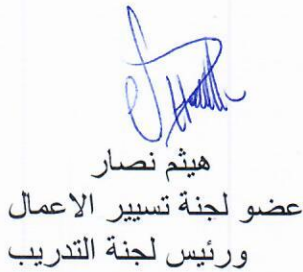 هيثم نصار
عضو لجنة تسيير الاعمال
ورئيس لجنة التدريب